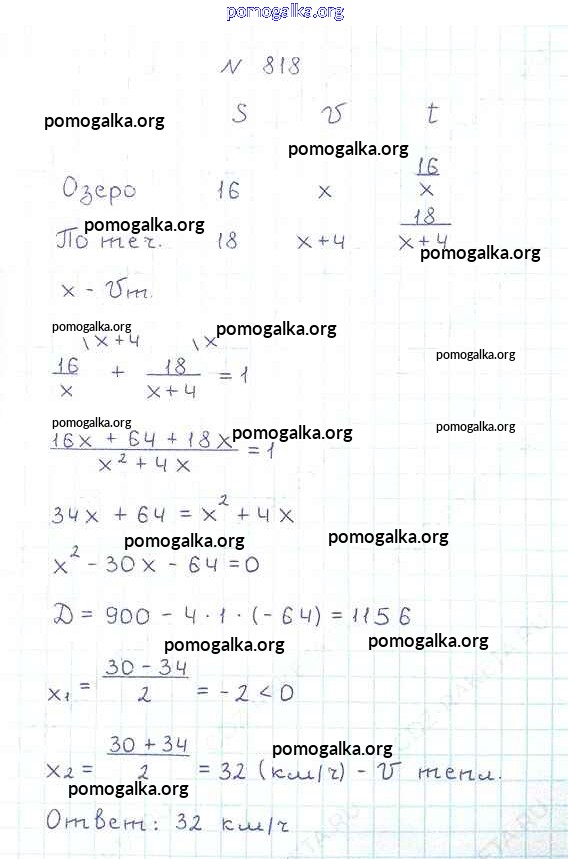 pomogalka.org
N 818
S v t
pomogalka.org
pomogalka.org
Озеро 16 x 16/x
pomogalka.org
По теч. 18 x+4 18/(x+4)
pomogalka.org
x - Vт.
pomogalka.org pomogalka.org
pomogalka.org
16/x \x+4 + 18/(x+4) \x = 1
pomogalka.org pomogalka.org
pomogalka.org
(16x + 64 + 18x)/(x² + 4x) = 1
34x + 64 = x² + 4x
pomogalka.org pomogalka.org
x² - 30x - 64 = 0
D = 900 - 4 · 1 · (-64) = 1156
pomogalka.org pomogalka.org
x₁ = (30 - 34)/2 = -2 < 0
pomogalka.org
x₂ = (30 + 34)/2 = 32 (км/ч) - V тепл.
pomogalka.org
Ответ: 32 км/ч